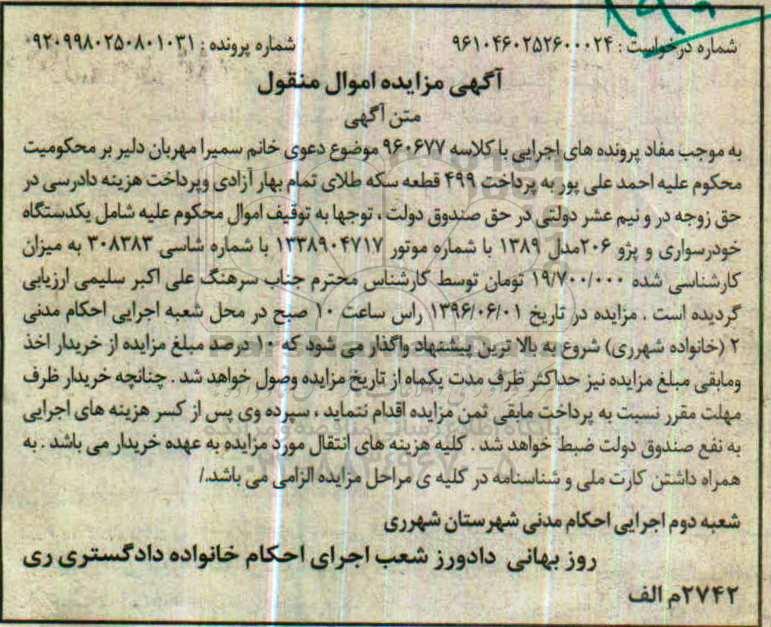 شماره درخواست : ۹۶۱۰۴۶۰۲۵۲۶۰۰۰۲۴ شماره پرونده : ۰۹۲۰۹۹۸۰۲۵۰۸۰۱۰۳۱
آگهی مزایده اموال منقول
متن آگهی
به موجب مفاد پرونده های اجرایی با کلاسه ۹۶۰۶۷۷ موضوع دعوی خانم سمیرا مهربان دلیر بر محکومیت
محکوم علیه احمد علی پور به پرداخت ۴۹۹ قطعه سکه طلای تمام بهار آزادی وپرداخت هزینه دادرسی در
حق زوجه در و نیم عشر دولتی در حق صندوق دولت ، توجها به توقیف اموال محکوم علیه شامل یکدستگاه
خودرسواری و پژو ۲۰۶مدل ۱۳۸۹ با شماره موتور ۱۳۳۸۹۰۴۷۱۷ با شماره شاسی ۳۰۸۳۸۳ به میزان
کارشناسی شده ۱۹/۷۰۰/۰۰۰ تومان توسط کارشناس محترم جناب سرهنگ علی اکبر سلیمی ارزیابی
گردیده است . مزایده در تاریخ ۱۳۹۶/۰۶/۰۱ راس ساعت ۱۰ صبح در محل شعبه اجرایی احکام مدنی
۲ (خانواده شهرری) شروع به بالا ترین پیشنهاد واگذار می شود که ۱۰ درصد مبلغ مزایده از خریدار اخذ
ومابقی مبلغ مزایده نیز حداکثر ظرف مدت یکماه از تاریخ مزایده وصول خواهد شد . چنانچه خریدار ظرف
مهلت مقرر نسبت به پرداخت مابقی ثمن مزایده اقدام نتماید ، سپرده وی پس از کسر هزینه های اجرایی
به نفع صندوق دولت ضبط خواهد شد . کلیه هزینه های انتقال مورد مزایده به عهده خریدار می باشد . به
همراه داشتن کارت ملی و شناسنامه در کلیه ی مراحل مزایده الزامی می باشد./
شعبه دوم اجرایی احکام مدنی شهرستان شهرری
روز بهانی دادورز شعب اجرای احکام خانواده دادگستری ری
۲۷۴۲م الف